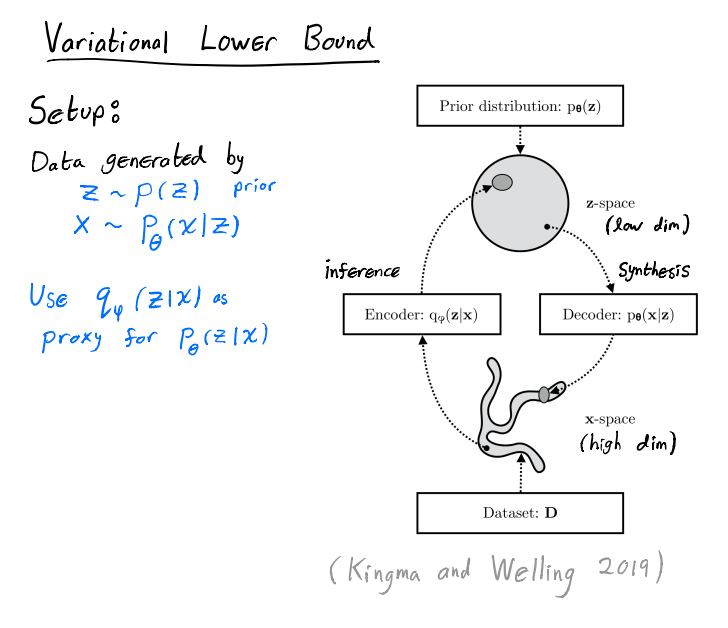 Variational Lower Bound
Setup:
Data generated by
z ~ p(z) prior
x ~ p_θ(x|z)
Use q_φ(z|x) as
proxy for p_θ(z|x)
Prior distribution: p_θ(z)
z-space
(low dim)
inference
synthesis
Encoder: q_φ(z|x)
Decoder: p_θ(x|z)
x-space
(high dim)
Dataset: D
(Kingma and Welling 2019)